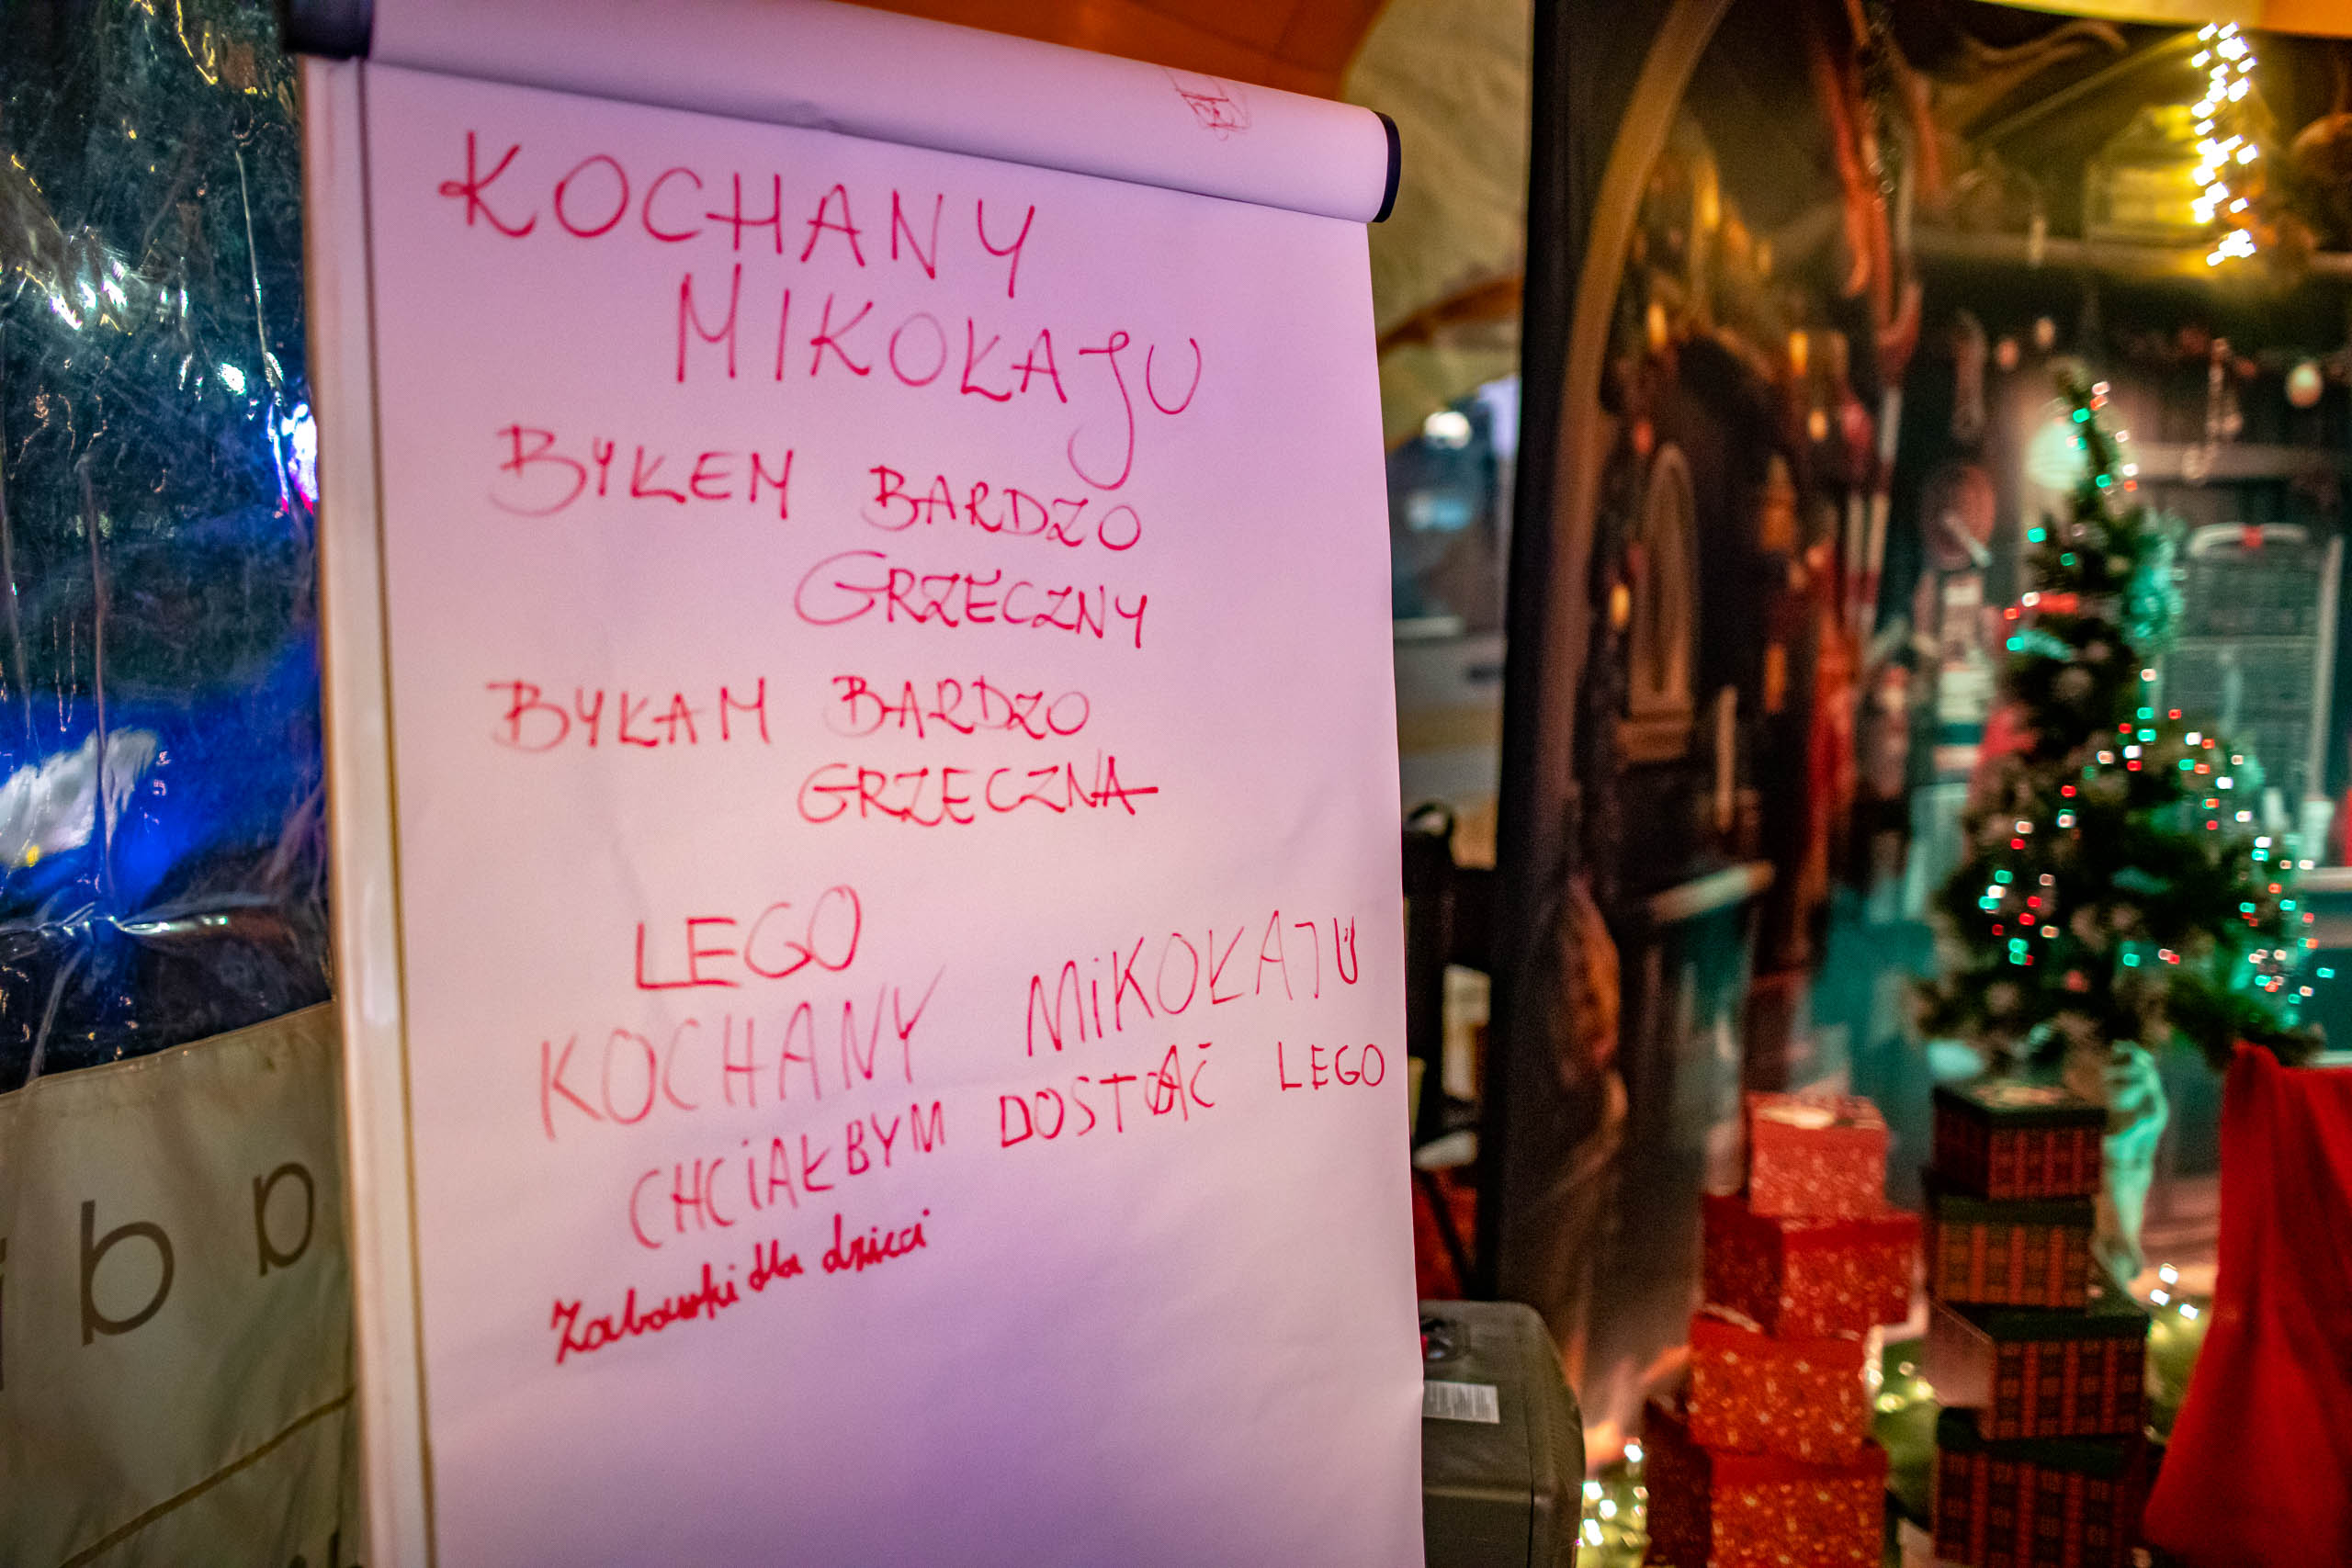 KOCHANY
MIKOŁAJU
BYŁEM BARDZO
GRZECZNY
BYŁAM BARDZO
GRZECZNA
LEGO
KOCHANY MIKOŁAJU
CHCIAŁBYM DOSTAĆ LEGO
Zabawki dla dzieci